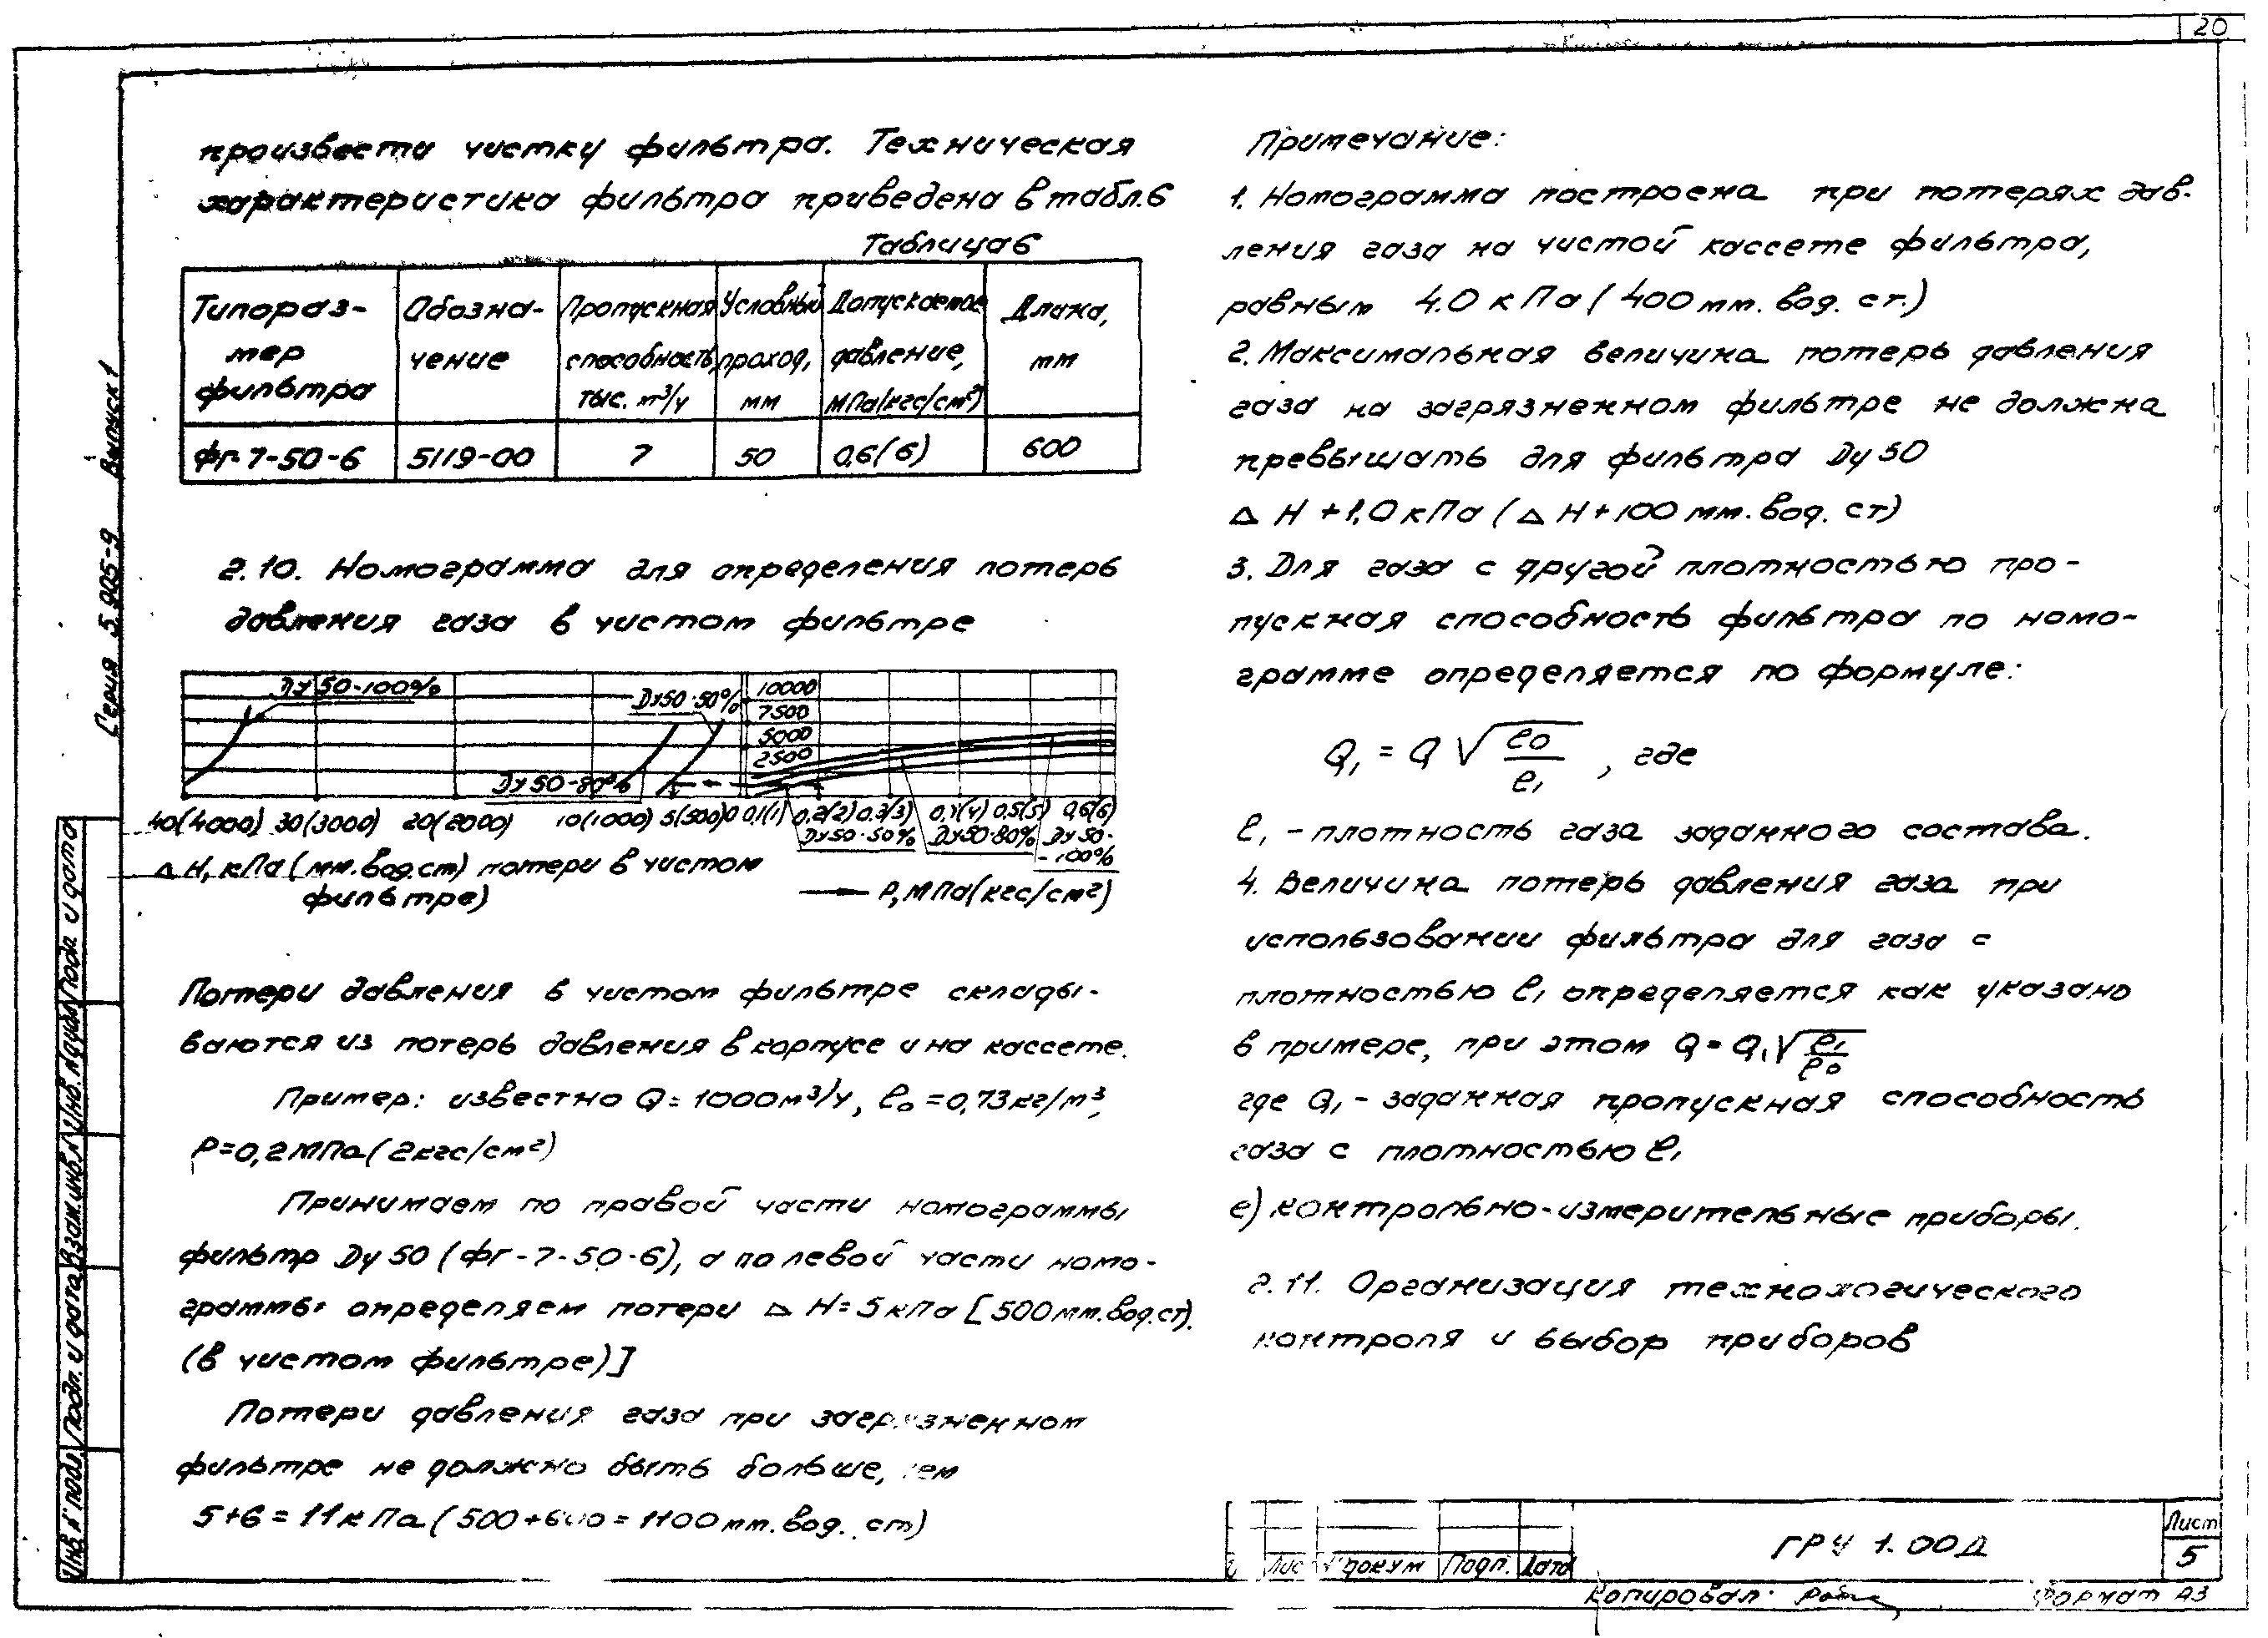 20
произвести чистку фильтра. Техническая
характеристика фильтра приведена в табл.6
Таблица 6
Типораз-
мер
фильтра
Обозна-
чение
Пропускная
способность,
тыс. м³/ч
Условный
проход,
мм
Допускаемое
давление,
МПа(кгс/см²)
Длина,
мм
ФГ-7-50-6 5119-00 7 50 0,6(6) 600
2.10. Номограмма для определения потерь
давления газа в чистом фильтре
Ду 50-100%
Ду50-50%
10000
7500
5000
2500
Ду 50-80%
40(4000) 30(3000) 20(2000) 10(1000) 5(500) 0 0,1(1) 0,2(2) 0,3(3) 0,4(4) 0,5(5) 0,6(6)
Ду50-50% Ду50-80% Ду 50-
-100%
Δ H, кПа (мм.вод.ст) потери в чистом
фильтре)
P, МПа(кгс/см²)
Потери давления в чистом фильтре склады-
ваются из потерь давления в корпусе и на кассете.
Пример: известно Q = 1000м³/ч, ρ₀ = 0,73кг/м³,
P=0,2МПа(2кгс/см²)
Принимаем по правой части номограммы
фильтр Ду 50 (ФГ-7-50-6), а по левой части номо-
граммы определяем потери Δ H = 5 кПа [500мм.вод.ст).
(в чистом фильтре)]
Потери давления газа при загрязненном
фильтре не должно быть больше, чем
5+6 = 11к Па (500+600 = 1100 мм. вод. ст)
Примечание:
1. Номограмма построена при потерях дав-
ления газа на чистой кассете фильтра,
равным 4.0 к Па (400 мм. вод. ст.)
2. Максимальная величина потерь давления
газа на загрязненном фильтре не должна
превышать для фильтра Ду 50
Δ H + 1,0 кПа (Δ H + 100 мм. вод. ст)
3. Для газа с другой плотностью про-
пускная способность фильтра по номо-
грамме определяется по формуле:
Q₁ = Q √ρ₀/ρ₁ , где
ρ₁ - плотность газа заданного состава.
4. Величина потерь давления газа при
использовании фильтра для газа с
плотностью ρ₁ определяется как указано
в примере, при этом Q = Q₁√ρ₁/ρ₀
где Q₁ - заданная пропускная способность
газа с плотностью ρ₁
е) контрольно-измерительные приборы.
2.11. Организация технологического
контроля и выбор приборов
Серия 5.905-9 Выпуск 1
Инв.N подл. Подп. и дата Взам.инв.N Инв.N дубл. Подп. и дата
Лис N докум Подп. Дата
ГРУ 1.00Д
Лист
5
Копировал:
Формат А3